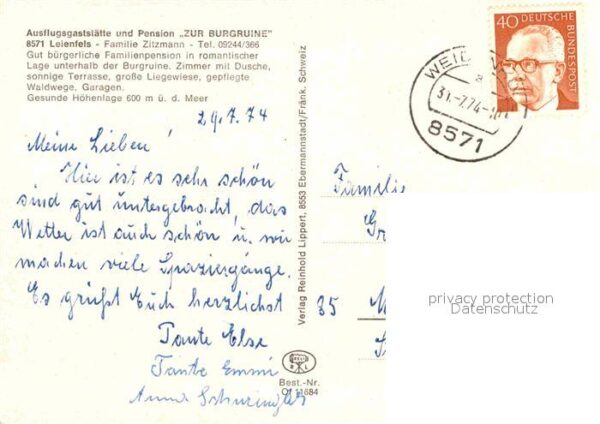 Ausflugsgaststätte und Pension „ZUR BURGRUINE"
8571 Leienfels - Familie Zitzmann - Tel. 09244/366
Gut bürgerliche Familienpension in romantischer
Lage unterhalb der Burgruine. Zimmer mit Dusche,
sonnige Terrasse, große Liegewiese, gepflegte
Waldwege, Garagen.
Gesunde Höhenlage 600 m ü. d. Meer
29.7.74
Meine Lieben!
Hier ist es sehr schön
sind gut untergebracht, das
Wetter ist auch schön u. wir
machen viele Spaziergänge.
Es grüßt Euch herzlichst
Tante Else
Tante Emmi
Anna
Verlag Reinhold Lippert, 8553 Ebermannstadt/Fränk. Schweiz
Best.-Nr.
O/11684
40 DEUTSCHE
BUNDESPOST
31.-7.74
8571
Familie
35
privacy protection
Datenschutz